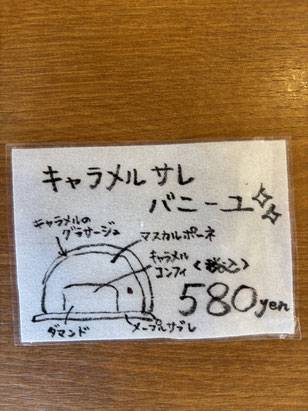 キャラメルサレ
バニーユ
キャラメルの
グラサージュ
マスカルポーネ
キャラメル
コンフィ
(税込)
580yen
ダマンド
メープルサブレ